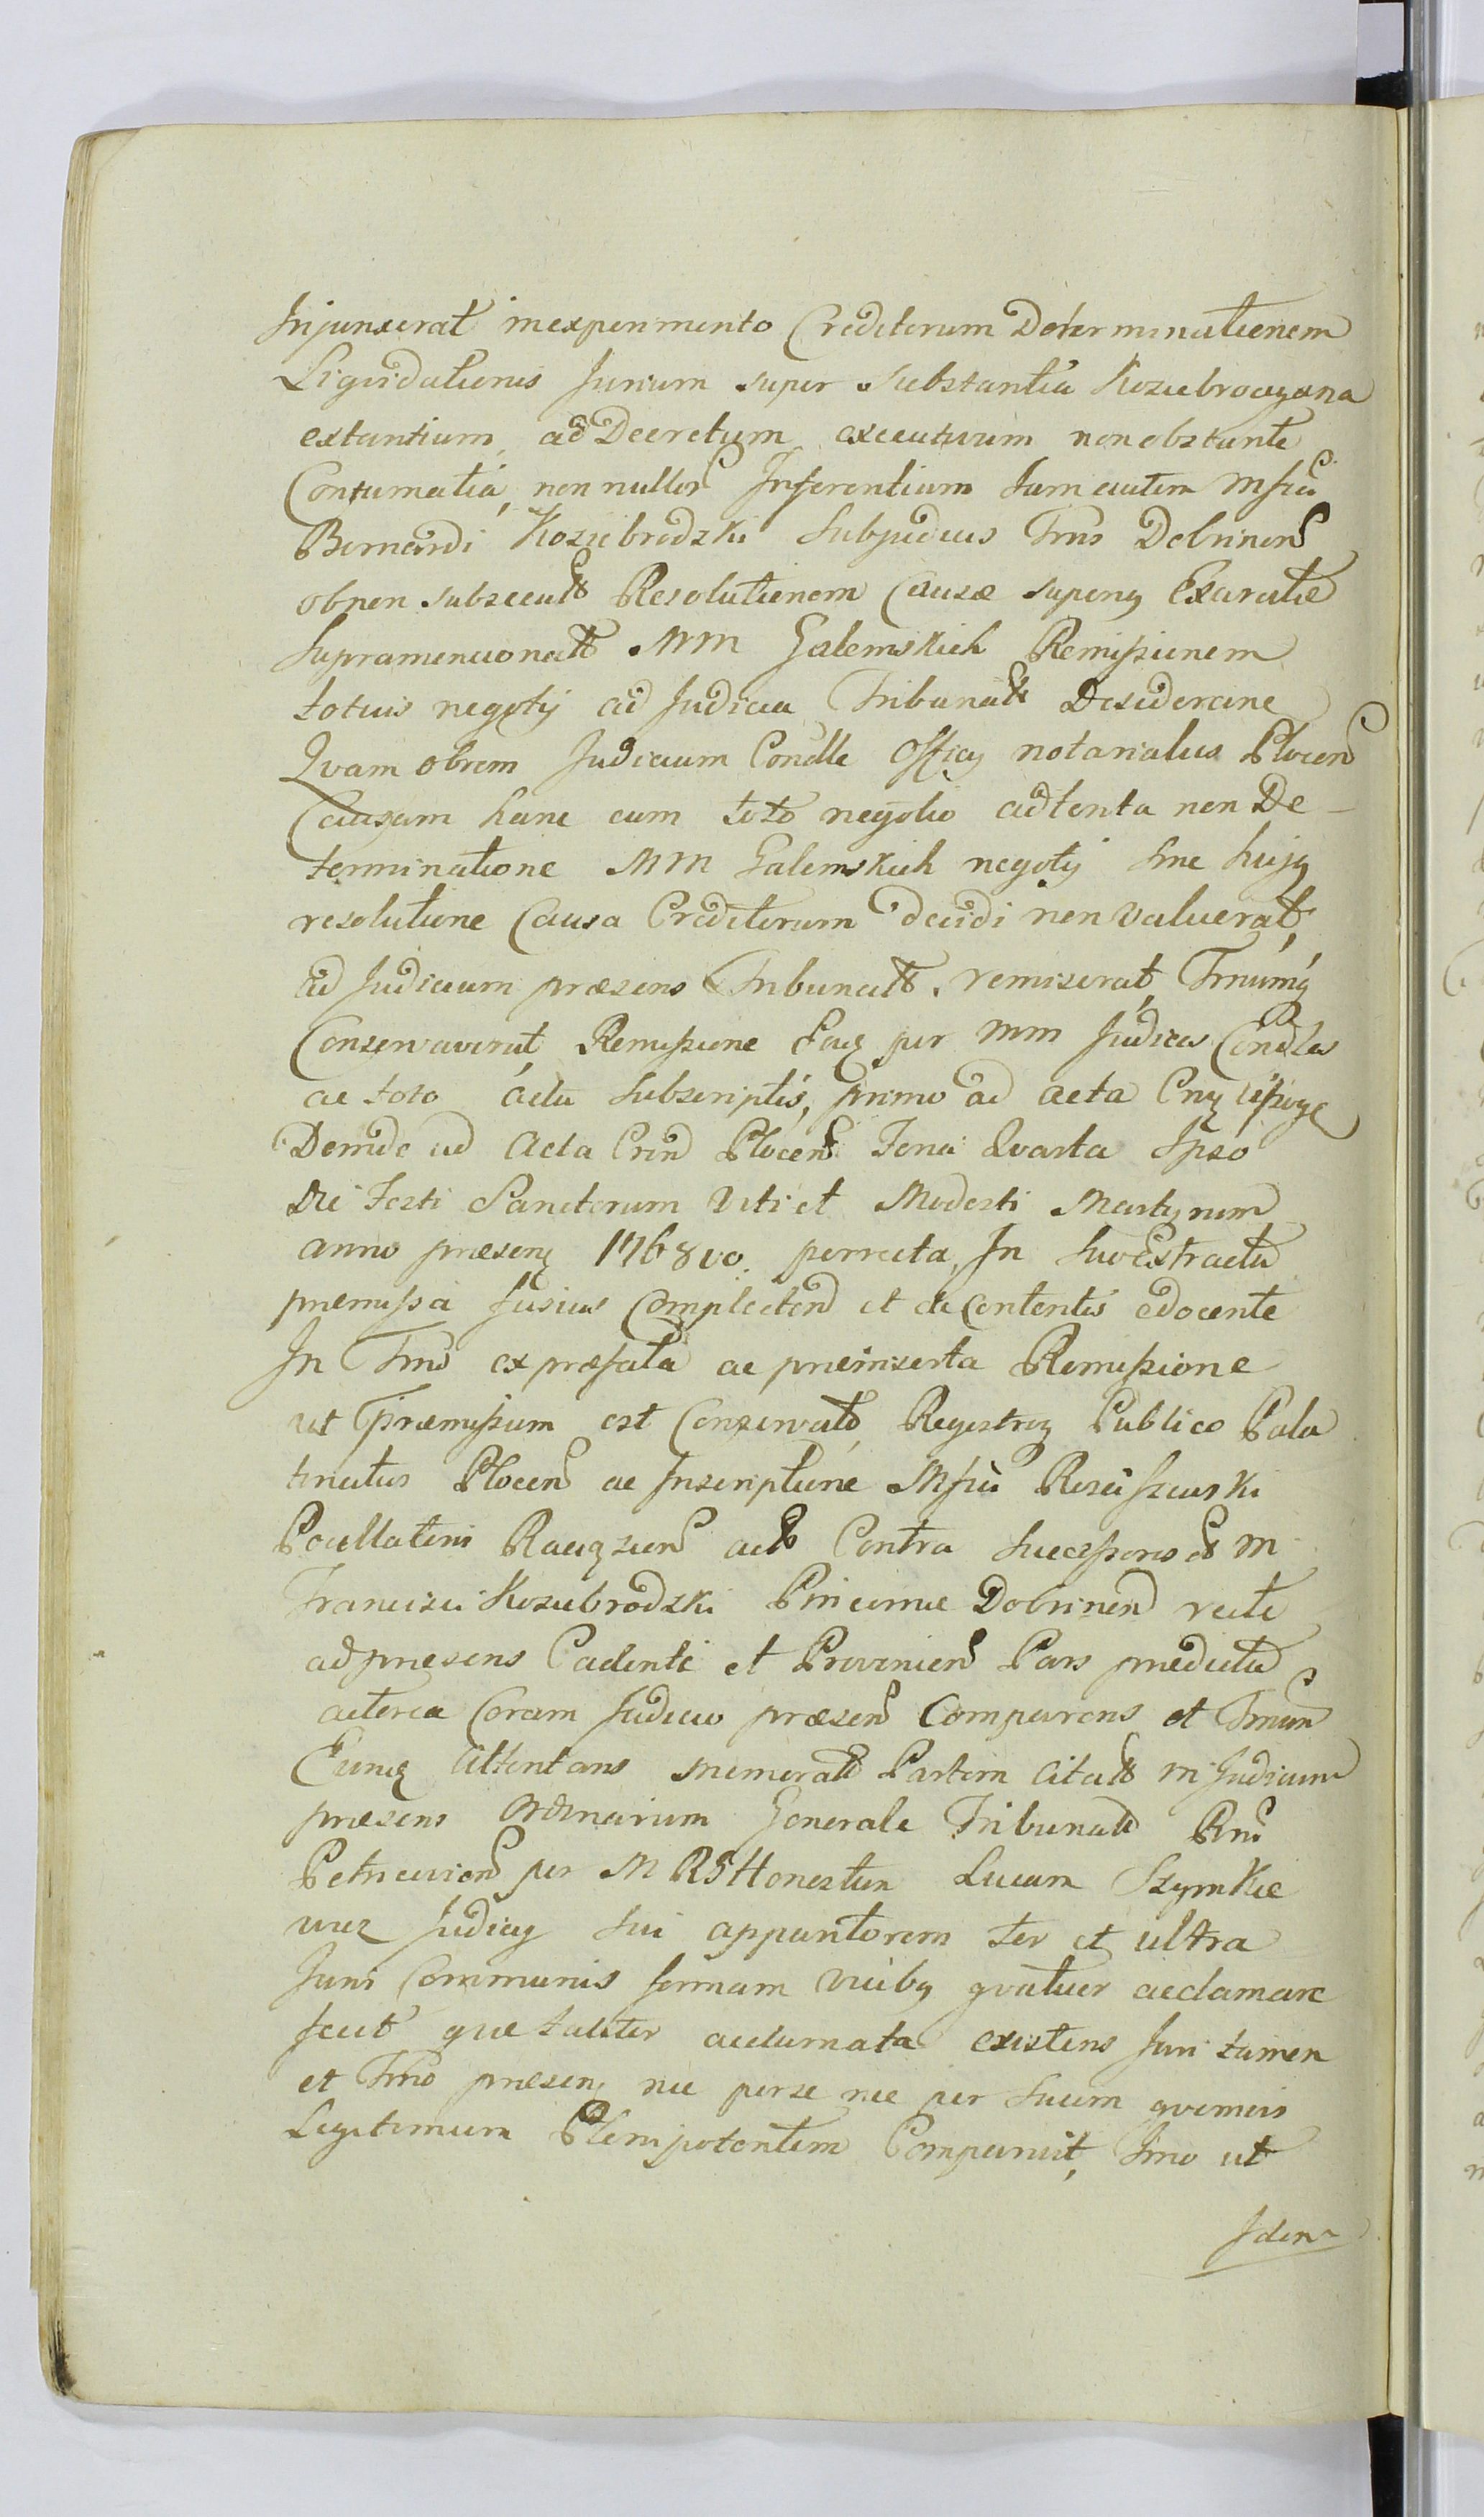 Injunxerat inexperimento Creditorum Determinationem
Liqvidationis Jurium super Substantia Koziebrocyana
extantium, ad Decretum executivum non obstante
Contumatia, non nullor Inferentium Jam autem Mfici
Bernardi Koziebrodzki Subjudicis Trris Dobrinens
obnon subsecut Resolutionem Causæ Exaratæ
Supramencionat MM Galemskich Remissionem
totius negotij ad Judicia Tribunal Desiderane
Qvam obrem Judicium Condle Officij notarialus Plocens
Causam hanc cum toto negotio adtenta non De-
terminatione MM Galemskich negotij sine hujq
resolutione Causa Creditorum decidi non valuerat,
ad Judicium præsens Tribunal. remiserat, Trnumq
Conservaverat, Remissione Eaq per MM Judices Condles
ac toto actu Subscriptis, primo ad acta
Deinde ad Acta Plocens Feria Qvarta Ipso
Die Festi Sanctorum Viti et Modesti Martyrum
anno præsenq 1768vo. porrecta, In suo Extractu
præmissa fusius Complecten et de Contentis edocente
In Trno ex præfata ac præinserta Remissione
ut præmissum est Conservato, Registroq Publico Pala
tinatus Plocens ac Inscriptione Mfici Rosciszewski
Pocillatoris Raciązens act Contra Successores M
Francisci Koziebrodzki Pincernæ Dobrinens recte
ad præsens Cadenti et Provenien Pars prædicta
actorea Coram Judicio præsen Comparens et Trnum
Eumq Attentans memorat Partem Citat in Judicium
præsens Ordinarium Generale Tribunal Rni
Petricovien per M RS Honestum Lucam Szymkie
wicz Judicij sui apparitorem ter et ultra
Juris Communis formam vicibq qvatuor acclamare
fecit quæ taliter acclamata existens Juri tamen
et Trno præsenq nec per se nec per suum qvemvis
Legitimum Plenipotentem Comparuit, Imo ut
Idem